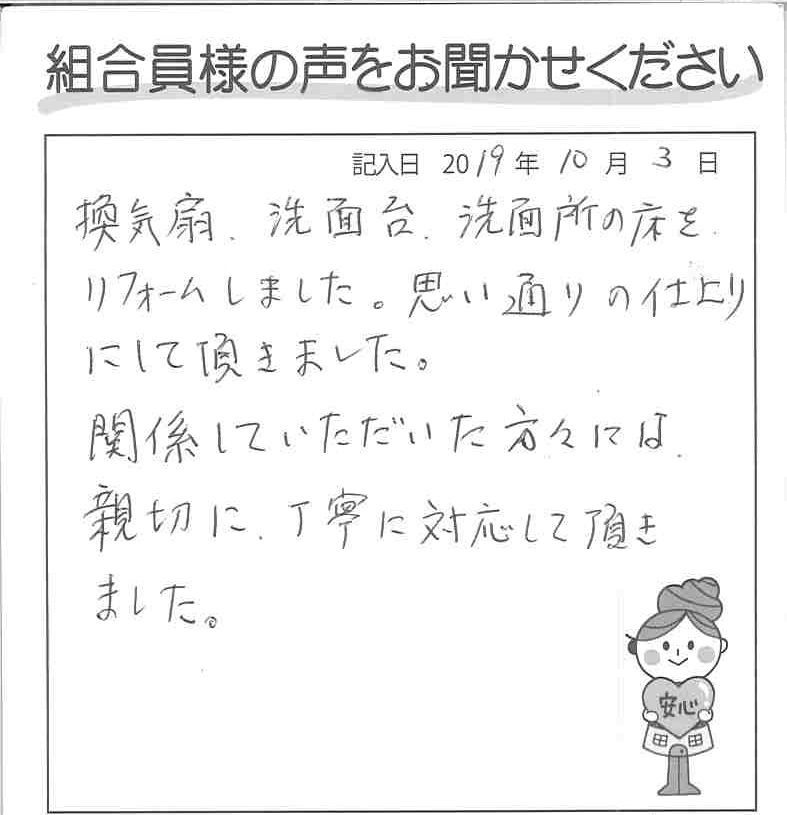 組合員様の声をお聞かせください
記入日 2019年 10月 3日
換気扇、洗面台、洗面所の床を
リフォームしました。思い通りの仕上り
にして頂きました。
関係していただいた方々には、
親切に、丁寧に対応して頂き
ました。
安心